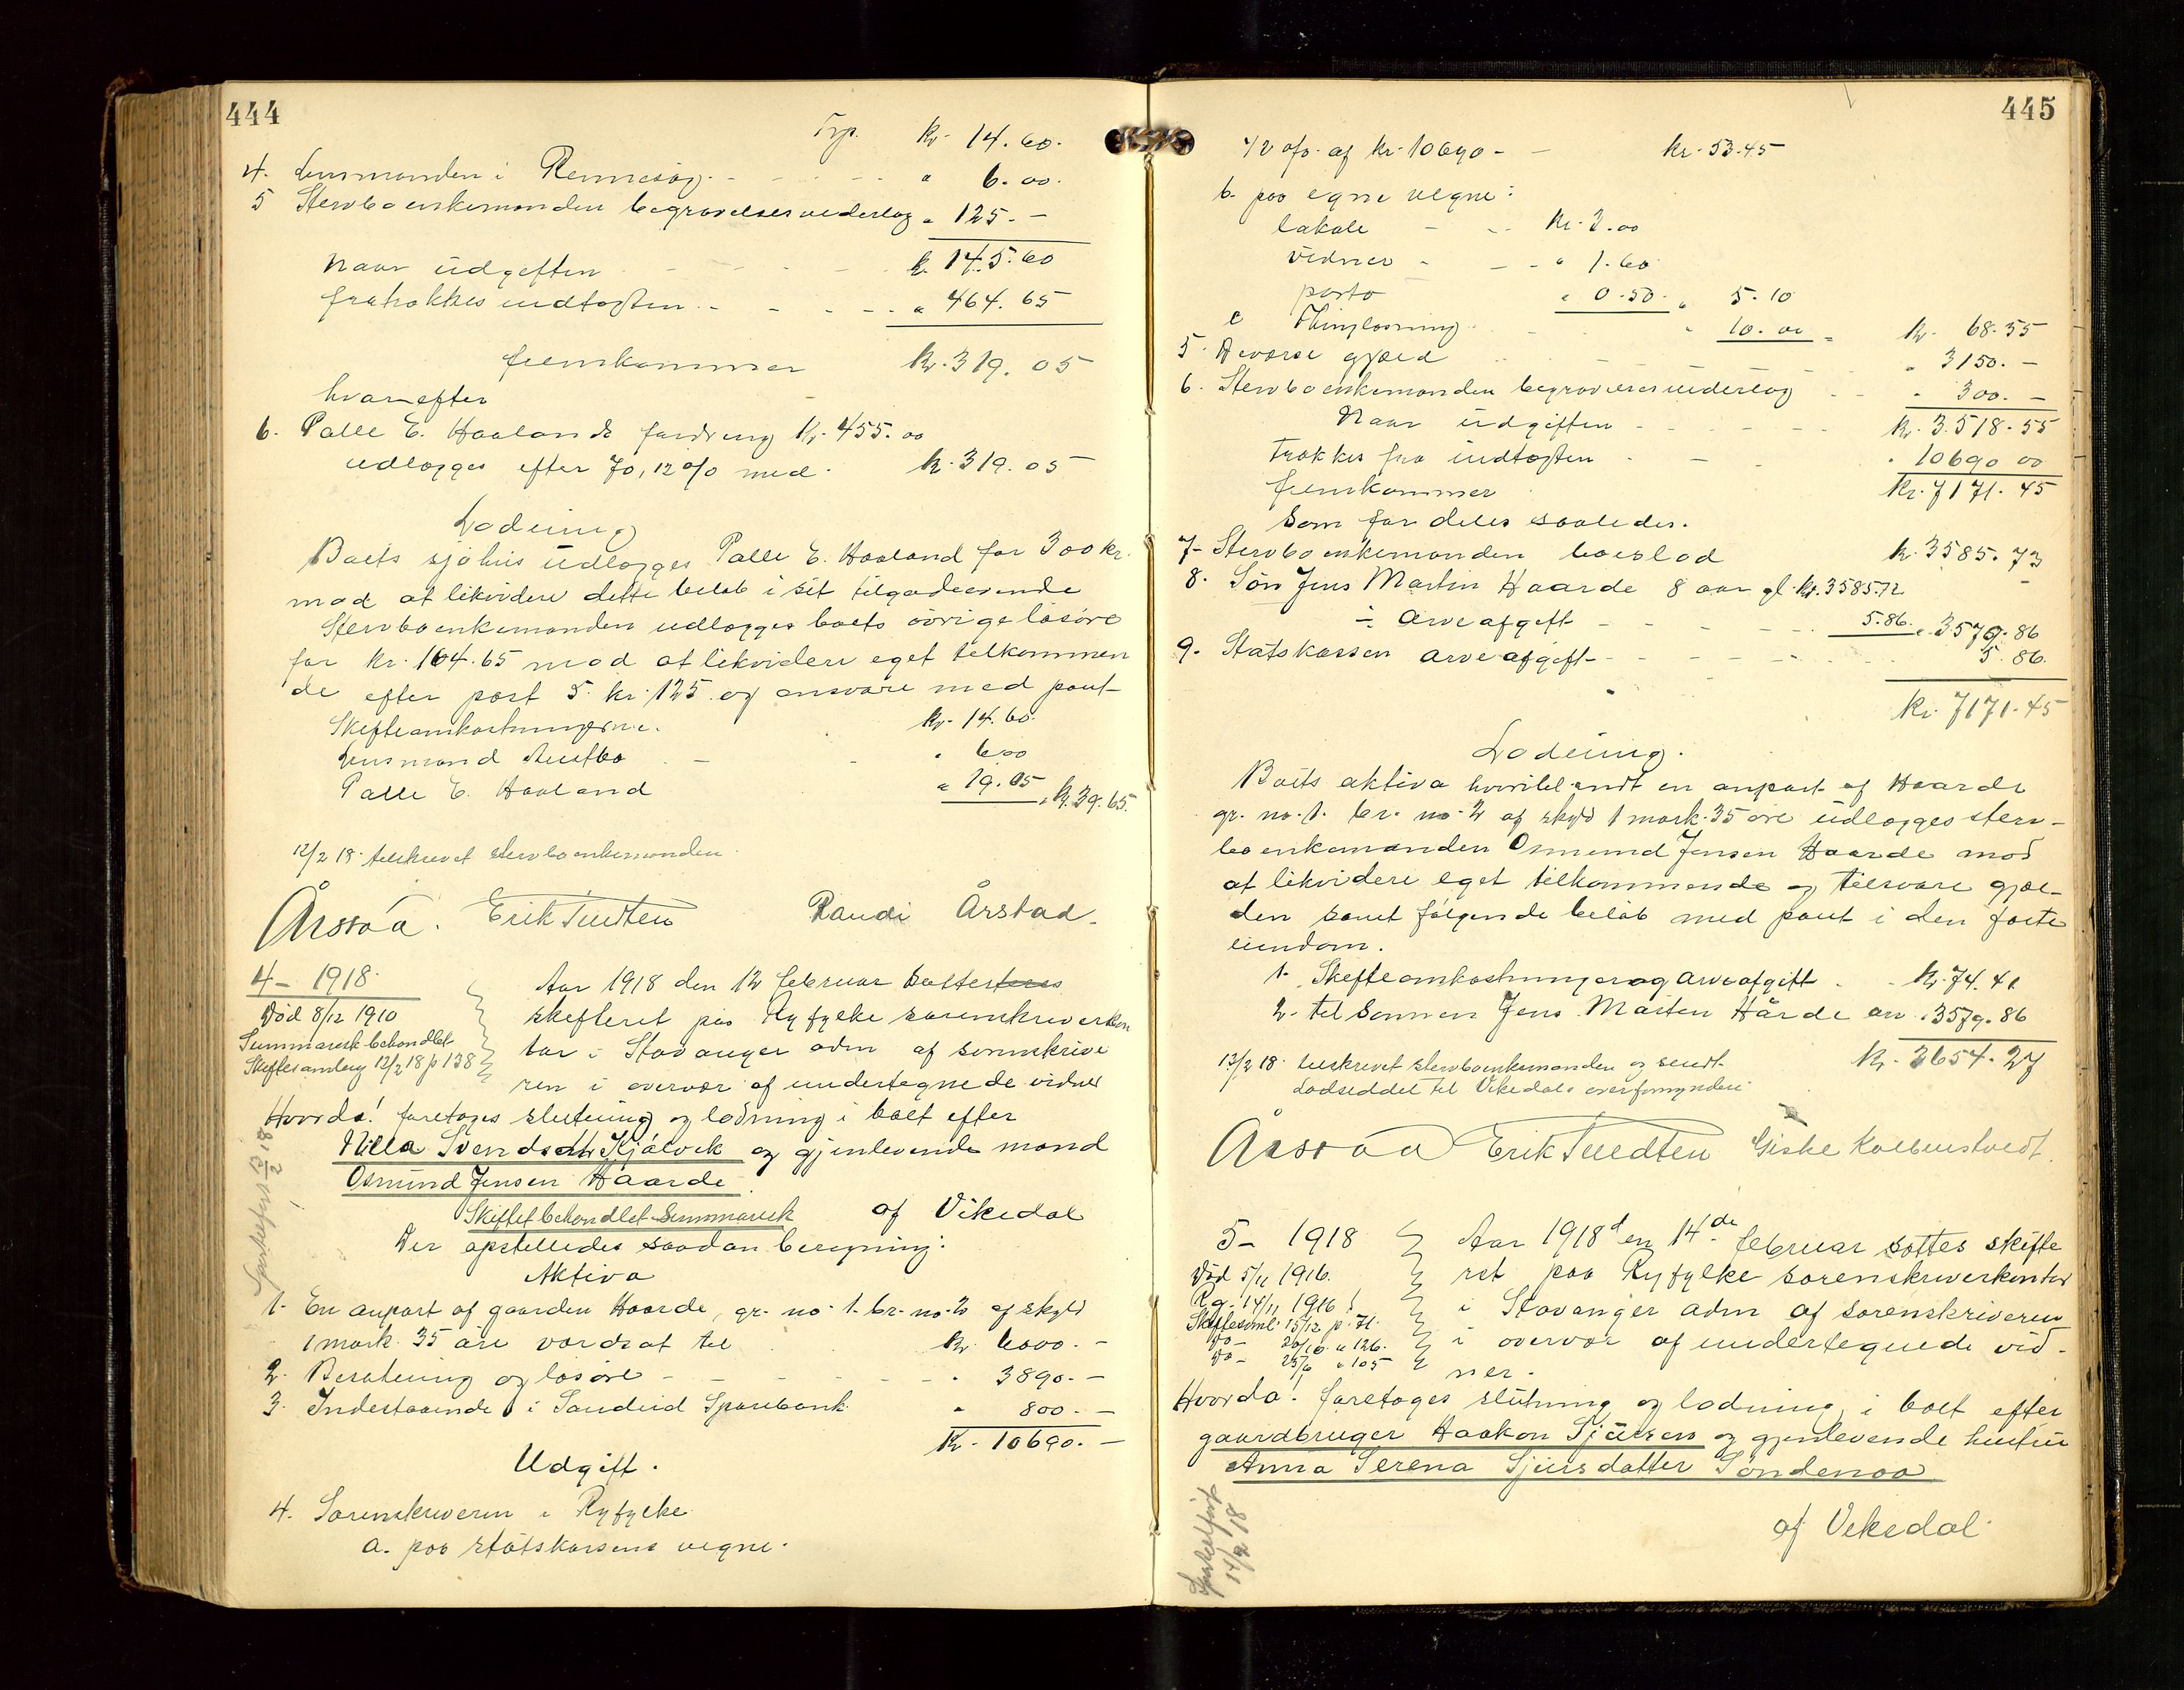 444
Trp. kr 14.60.
4. Lensmanden i Rennesøy. - - - - - " 6.00.
5 Stervboenkemanden begravelsesvederlag " 125. -
Naar udgiften - - - - kr 145.60
fratrækkes indtægten. - - - - - " 464.65
fremkommer kr. 319.05
hvorefter
6. Palle E. Haalands fordring kr. 455.00
udlægges efter 70,12 % med. kr. 319.05
Lodning
Boets sjøhus udlægges Palle E. Haaland for 300 kr.
mod at likvidere dette beløb i sit tilgodehavende
Stervboenkemanden udlægges boets øvrige løsøre
for kr. 164.65 mod at likvidere eget tilkommen
de efter post 5. kr. 125. og ansvare med pant
Skifteomkostningerne. kr. 14.60.
Lensmand Austbø - - " 6.00
Palle E. Haaland " 19.05 " kr. 39.65.
12/2 18. tilskrevet stervboenkemanden.
Årstad. Erik Tuedten Randi Årstad.
4 - 1918.
Død 8/12 1910
Summarisk behandlet
Skiftesamling 12/2 18 p 138
Aar 1918 den 12 februar sattes
skifteret paa Ryfylke sorenskriverkon
tor i Stavanger adm af sorenskrive
ren i overvær af undertegnede vidner
Hvorda! foretoges slutning og lodning i boet efter
Nilla Svendsdtr Kjølvik og gjenlevende mand
Osmund Jensen Haarde
Skiftet behandlet Summarisk af Vikedal
Der opstilledes saadan beregning:
Aktiva
1. En anpart af gaarden Haarde, gr. no. 1. br. no. 2 af skyld
1 mark 35 øre vordsat til kr 6000. -
2. Besætning og løsøre - - - - - - " 3890. -
3. Indestaaende i Sandeid Sparebank. " 800. -
kr. 10690. -
Udgift.
4. Sorenskriveren i Ryfylke
a. paa statskassens vegne.
445
1/2 o/o. af kr. 10690 - - kr. 53.45
b. paa egne vegne:
lokale - - - kr. 3.00
vidner - - - " 1.60
porto " 0.50. " 5.10
c Thinglæsning. - " 10.00 = kr. 68.55
5. Diverse gjæld - - - " 3150. -
6. Stervboenkemanden begravelsesvederlag - - " 300. -
Naar udgiften - - - - - kr. 3518.55
trækkes fra indtægten - - " 10690 00
fremkommer kr. 7171.45
Som fordeles saaledes.
7 - Stervboenkemanden boeslod kr. 3585.73
8. Søn Jens Martin Haarde 8 aar gl. kr. 3585.72
÷ Arveafgift - - - - - - 5.86. " 3579.86
9. Statskassen arveafgift - - - - - 5.86.
kr. 7171.45
Lodning.
Boets aktiva hvoriblandt en anpart af Haarde
gr. no. 1. br. no. 2 af skyld 1 mark 35 øre udlægges sterv-
boenkemanden Osmund Jensen Haarde mod
at likvidere eget tilkommende og tilsvare gjæl-
den samt følgende beløb med pant i den faste
eiendom.
1. Skifteomkostninger og arveafgift - - kr. 74.41
2. til sønnen Jens Martin Hårde arv " 3579.86
kr. 3654.27
13/2 18. tilskrevet stervboenkemanden og sendt
lodseddel til Vikedals overformynderi.
Årstad Erik Tuedten Giske Kolbenstvedt.
5 - 1918
Død 5/11 1916.
Rg. 14/11 1916!
Skiftesaml 15/12 p. 71.
do - 20/10 " 126.
do - 25/6 " 105
Aar 1918 den 14de februar sattes skifte
ret paa Ryfylke sorenskriverkontor
i Stavanger adm af sorenskriveren
i overvær af undertegnede vid-
ner.
Hvorda! foretoges slutning og lodning, i boet efter
gaardbruger Haakon Sjursen og gjenlevende hustru
Anna Serena Sjursdatter Søndenaa
af Vikedal.
14/2 18